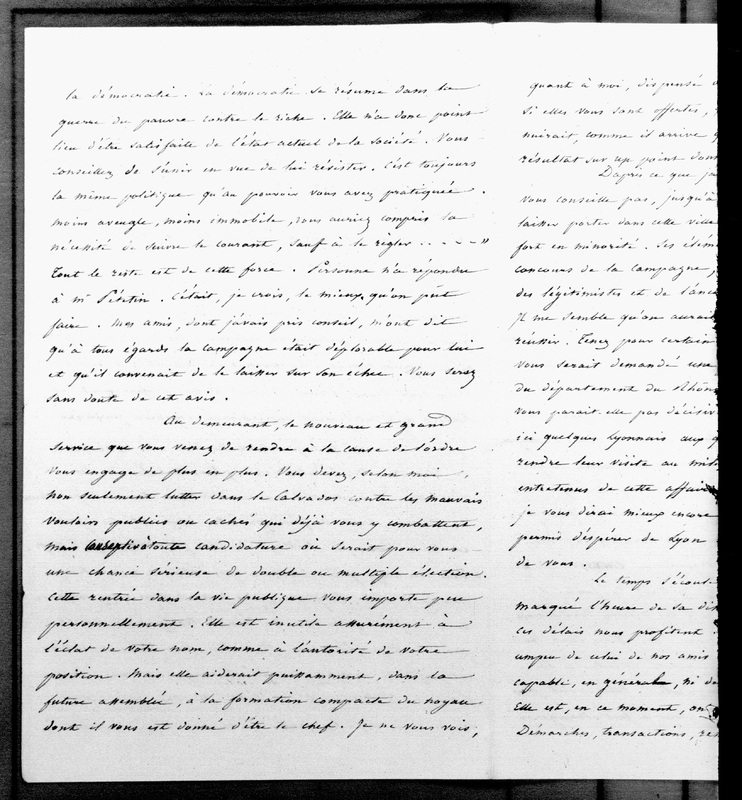 la démocratie. La démocratie se résume dans la
guerre du pauvre contre le riche. Elle n'a donc point
lieu d'être satisfaite de l'état actuel de la société. Vous
conseillez de s'unir en vue de lui résister. C'est toujours
la même politique qu'au pouvoir vous avez pratiquée.
moins aveugle, moins immobile, vous auriez compris la
nécessité de suivre le courant, sauf à le règler . . . . "
Tout le reste est de cette force. Personne n'a répondu
à Mr Pétetin. C'était, je crois, le mieux qu'on pût
faire. Mes amis, dont j'avais pris conseil, m'ont dit
qu'à tous égards la campagne était déplorable pour lui
et qu'il convenait de le laisser sur son échec. Vous serez
sans doute de cet avis.
Au demeurant, le nouveau et grand
service que vous venez de rendre à la cause de l'ordre
vous engage de plus en plus. Vous devez, selon moi,
non seulement lutter dans le Calvados contre les mauvais
vouloirs publics ou cachés qui déjà vous y combattent,
mais toute candidature où serait pour vous
une chance sérieuse de double ou multiple élection.
Cette rentrée dans la vie publique vous importe peu
personnellement. Elle est inutile assurément à
l'éclat de votre nom, comme à l'autorité de votre
position. Mais elle aiderait puissamment, dans la
future assemblée, à la formation compacte du noyau
dont il vous est donné d'être le chef. Je ne vous vois,
quant à moi, dispensé
Si elles vous sont offertes,
nuirait, comme il arrive
résultat sur un point dont
D'après ce que j'ai
vous conseille pas, jusqu'à
laisser porter dans cette ville
fort en minorité. Les élém
concours de la campagne,
des légitimistes et de l'anc
Il me semble qu'on aurait
réussir. Tenez pour certain
vous serait demandé une
du département du Rhôn
vous parait-elle pas décisiv
ici quelques Lyonnais aux
rendre leur visite au
entretenus de cette affaire
je vous dirai mieux encore
permis d'espérer de Lyon
de vous.
Le temps s'écoule
marqué l'heure de sa
ces délais nous profitent
unpeu de celui de nos amis
capable, en général, ni de
Elle est, en ce moment, on
Démarches, transactions,